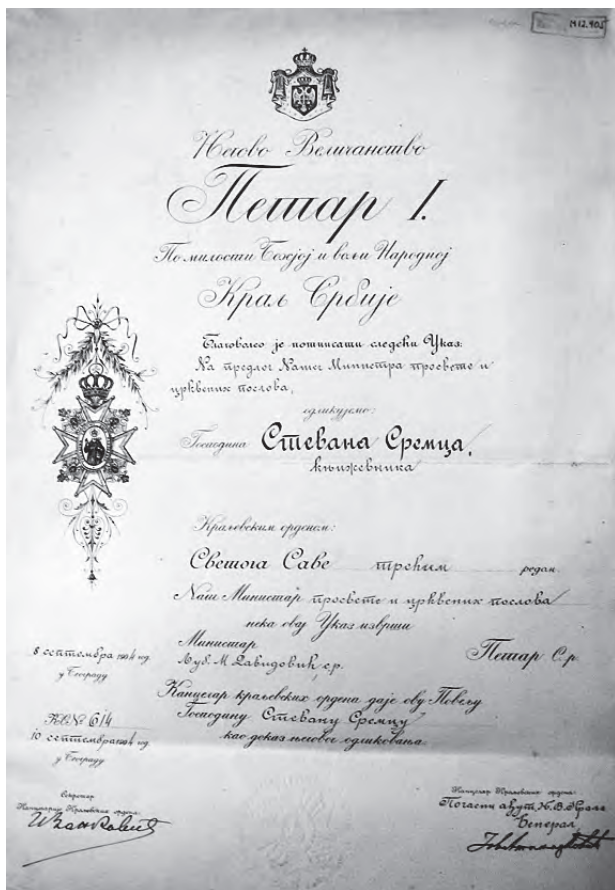 М12.405
Његово Величанство
Петар I.
По милости Божјој и вољи Народној
Краљ Србије
Благовалео је потписати следећи Указ:
На предлог Нашег Министра просвете и
црквених послова,
одликујемо:
Господина Стевана Сремца,
књижевника
Краљевским орденом:
Светога Саве трећим редом.
Наш Министар просвете и црквених послова
нека овај Указ изврши
8 септембра 1904 год.
у Београду
Министар
Љуб. М. Давидовић, с.р.
Петар С.р.
Канцелар краљевских ордена даје ову Повељу
Господину Стевану Сремцу
као доказ његовог одликовања.
КЕ № 614
10 септембра 1904 год.
у Београду
Секретар
Канцеларије Краљевских ордена
Канцелар Краљевских ордена
Почасни ађут. Њ. В. Краља
Ђенерал